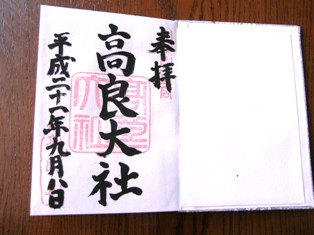 奉拝
高良大社
平成二十一年九月八日